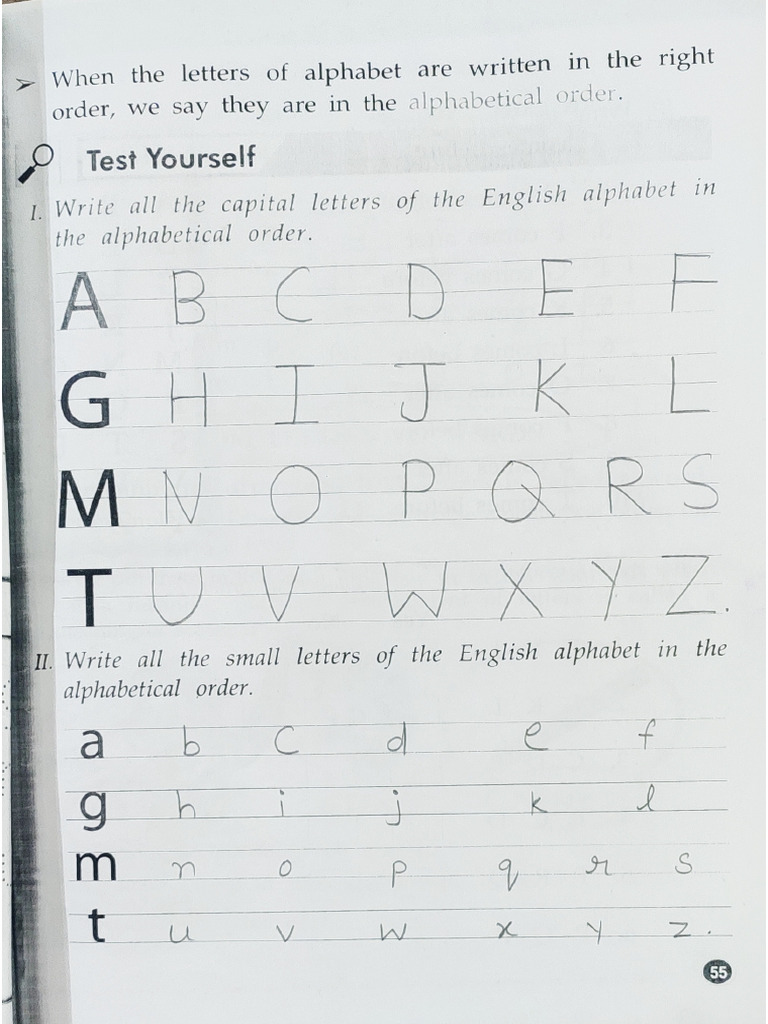 ➢ When the letters of alphabet are written in the right
order, we say they are in the alphabetical order.
Test Yourself
I. Write all the capital letters of the English alphabet in
the alphabetical order.
A B C D E F
G H I J K L
M N O P Q R S
T U V W X Y Z.
II. Write all the small letters of the English alphabet in the
alphabetical order.
a b c d e f
g h i j k l
m n o p q r s
t u v w x y z.
55